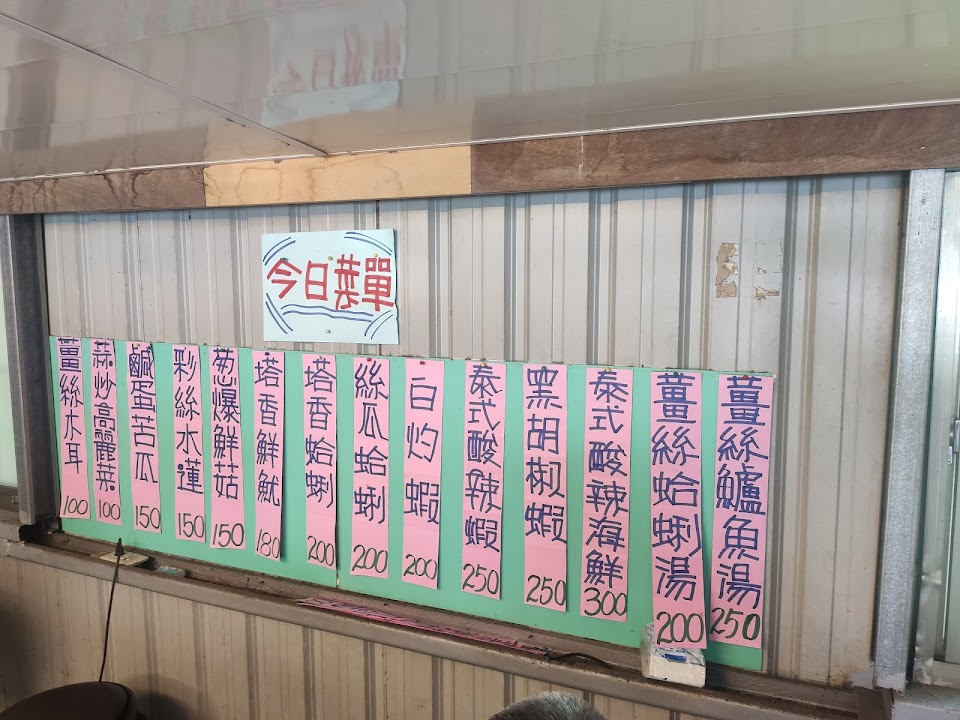 今日菜單
薑絲鱸魚湯 250
薑絲蛤蜊湯 200
泰式酸辣海鮮 300
黑胡椒蝦 250
泰式酸辣蝦 250
白灼蝦 200
絲瓜蛤蜊 200
塔香蛤蜊 200
塔香鮮魷 180
葱爆鮮菇 150
彩絲水蓮 150
鹹蛋苦瓜 150
蒜炒高麗菜 100
薑絲木耳 100